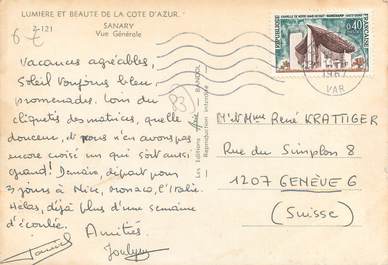 LUMIERE ET BEAUTE DE LA COTE D'AZUR.
2-121
SANARY
Vue Générale
Vacances agréables,
Soleil toujours bleu,
promenades. Loin du
cliquetis des matrices, quelle
douceur, et nous n'en avons pas
encore croisé un qui soit aussi
grand! Demain, départ pour
3 jours à Nice, Monaco, l'Italie.
Hélas, déjà plus d'une semaine
d'écoulée.
Amitiés
83
Les Editions
BANDOL
Reproduction interdite
REPUBLIQUE FRANÇAISE
0,40
1967
VAR
M. et Mme René KRATTIGER
Rue du Simplon 8
1207 GENÈVE 6
(Suisse)